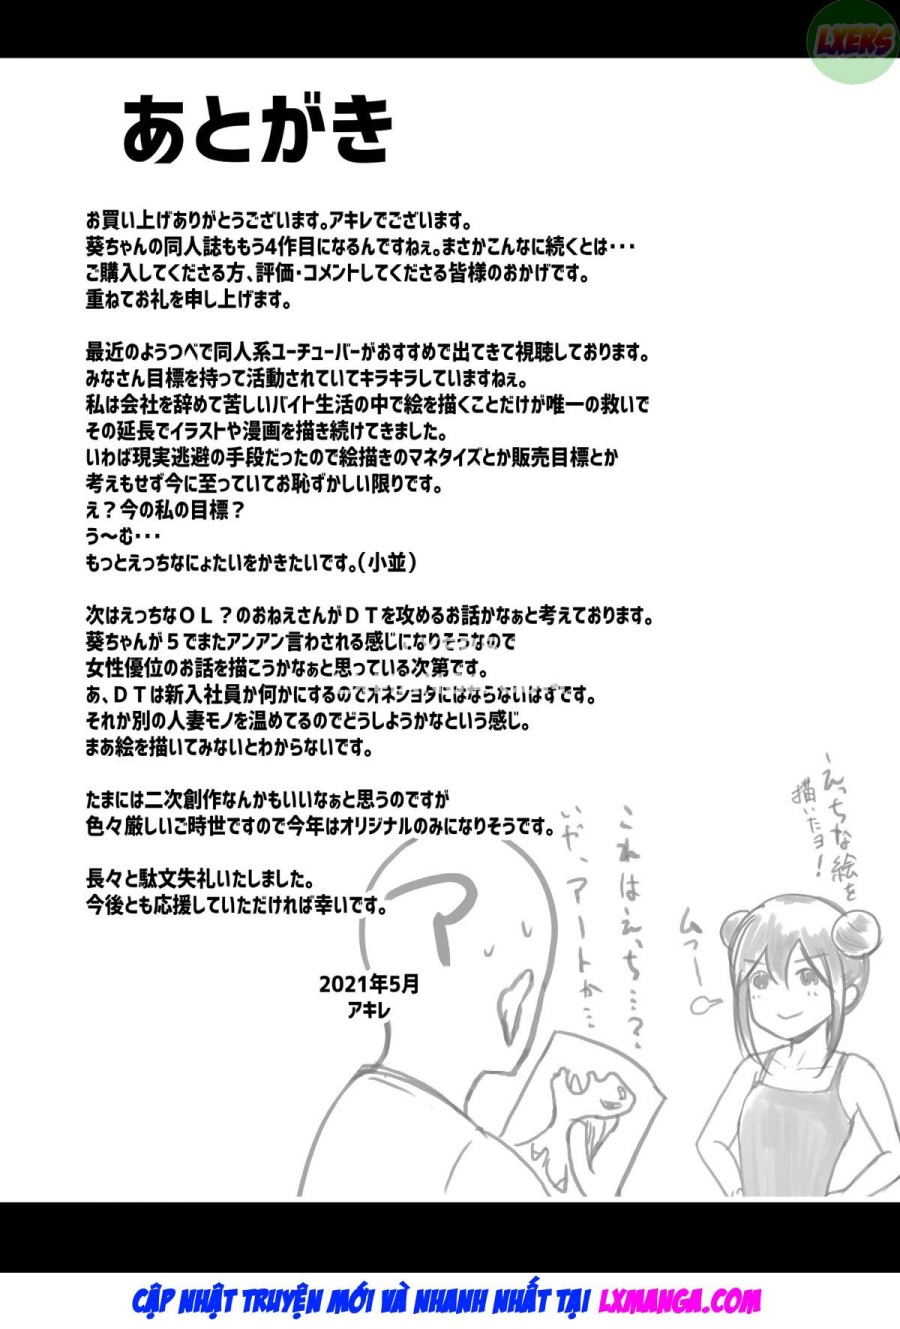 LXERS
あとがき
お買い上げありがとうございます。アキレでございます。
葵ちゃんの同人誌ももう4作目になるんですねぇ。まさかこんなに続くとは・・・
ご購入してくださる方、評価・コメントしてくださる皆様のおかげです。
重ねてお礼を申し上げます。
最近のようつべで同人系ユーチューバーがおすすめで出てきて視聴しております。
みなさん目標を持って活動されていてキラキラしていますねぇ。
私は会社を辞めて苦しいバイト生活の中で絵を描くことだけが唯一の救いで
その延長でイラストや漫画を描き続けてきました。
いわば現実逃避の手段だったので絵描きのマネタイズとか販売目標とか
考えもせず今に至っていてお恥ずかしい限りです。
え？今の私の目標？
う～む・・・
もっとえっちなにょたいをかきたいです。（小並）
次はえっちなＯＬ？のおねえさんがＤＴを攻めるお話かなぁと考えております。
葵ちゃんが５でまたアンアン言わされる感じになりそうなので
女性優位のお話を描こうかなぁと思っている次第です。
あ、ＤＴは新入社員か何かにするのでオネショタにはならないはずです。
それか別の人妻モノを温めてるのでどうしようかなという感じ。
まあ絵を描いてみないとわからないです。
たまには二次創作なんかもいいなぁと思うのですが
色々厳しいご時世ですので今年はオリジナルのみになりそうです。
長々と駄文失礼いたしました。
今後とも応援していただければ幸いです。
2021年5月
アキレ
えっちな絵を
描いたヨ！
ムフー
これはえっち…？
いや、アートか…
ア
CẬP NHẬT TRUYỆN MỚI VÀ NHANH NHẤT TẠI LXMANGA.COM